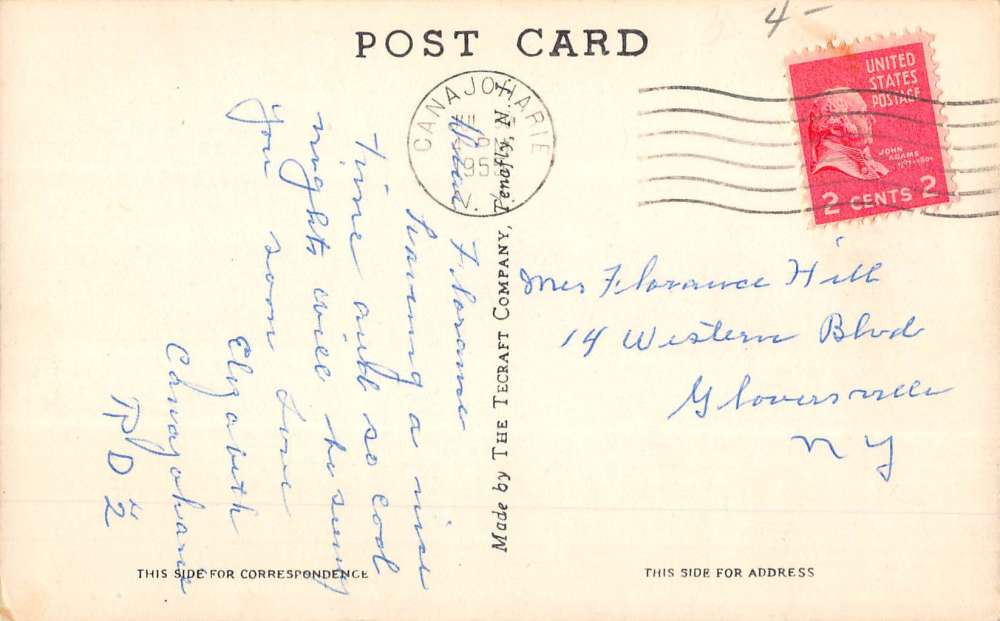 POST CARD
4-
CANAJOHARIE
6
195
N.Y.
UNITED
STATES
POSTAGE
JOHN
ADAMS
2 CENTS 2
Dear Florance
Having a nice
time with so cool
nights will be seeing
you soon Love
Elizabeth
Canajoharie
RD #2
Made by THE TECRAFT COMPANY, Tenafly, N. J.
Mrs Florance Hill
14 Western Blvd
Gloversville
NY
THIS SIDE FOR CORRESPONDENCE
THIS SIDE FOR ADDRESS